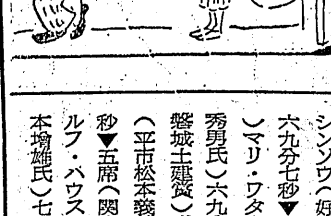 シンソウ(好
六九分七秒▼
)マリ・ワタ
秀男氏)六九
磐城土建賞)
(平市松本義
秒▼五席(関
ルフ・ハウス
本増雄氏)七